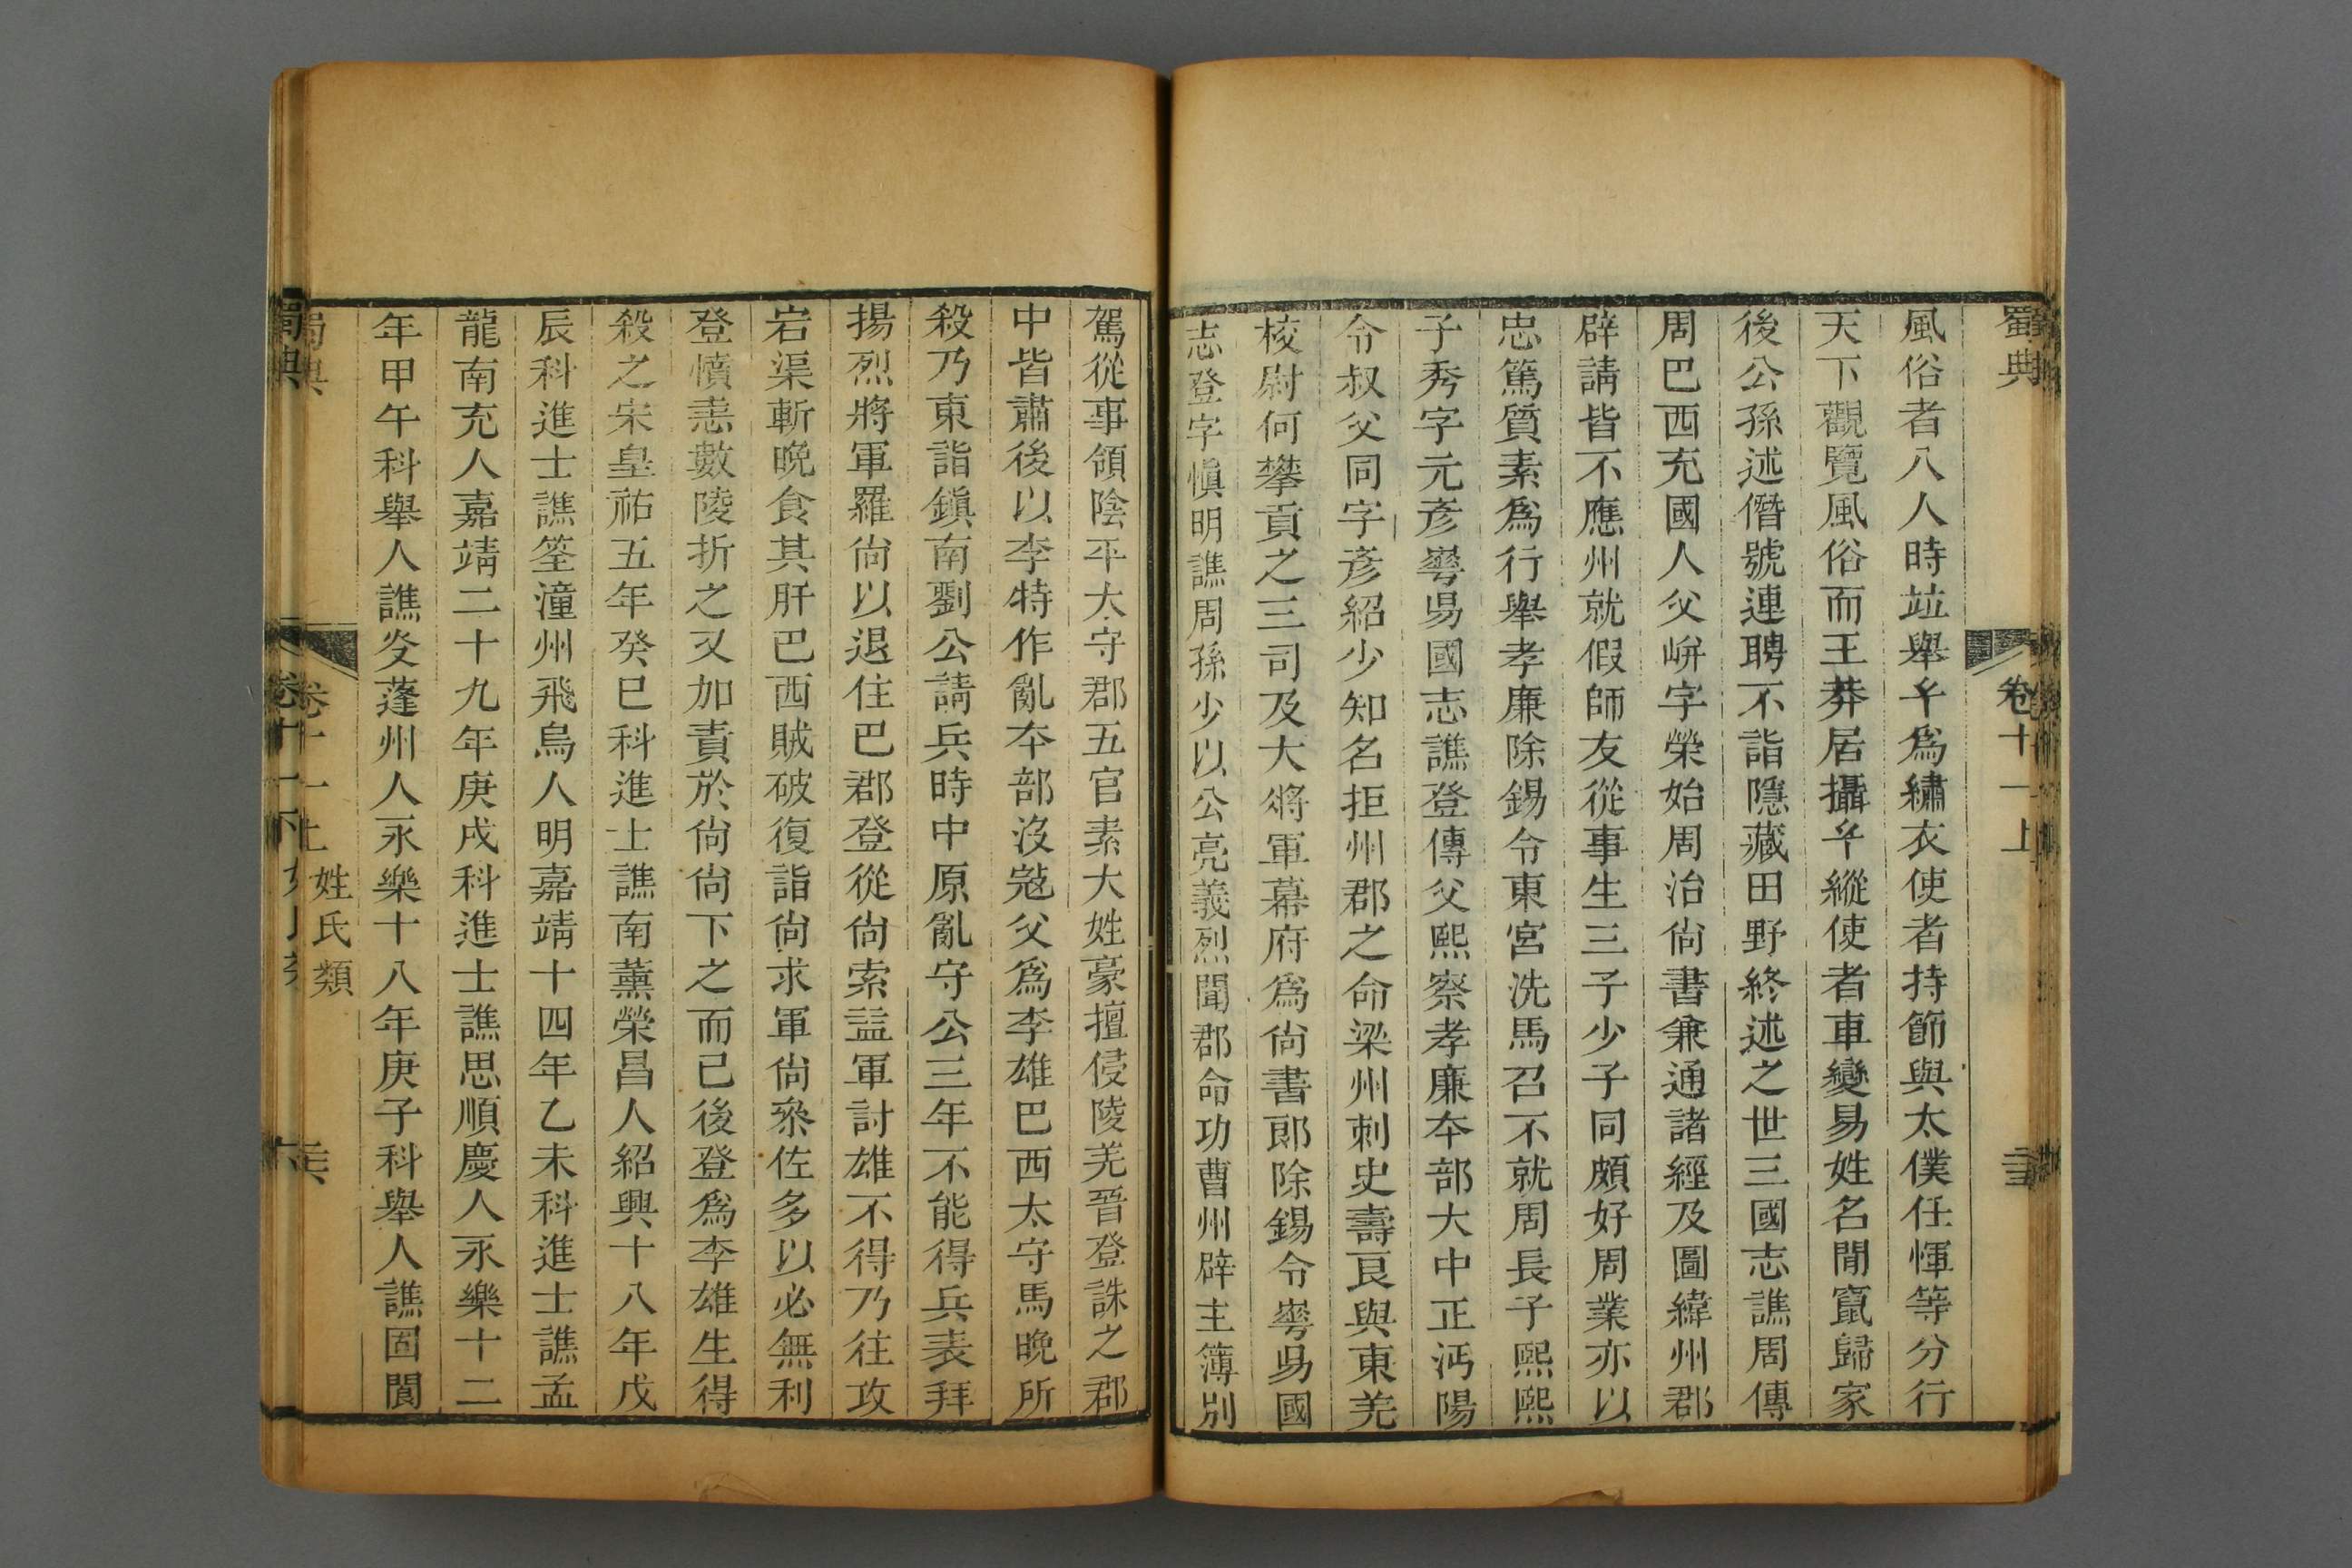 蜀典
卷十一上
風俗者八人時竝舉㢧爲繡衣使者持節與太僕任惲等分行
天下觀覽風俗而王莽居攝㢧縱使者車變易姓名閒竄歸家
後公孫述僭號連聘不詣隱藏田野終述之世三國志譙周傳
周巴西充國人父𡵆字榮始周治尙書兼通諸經及圖緯州郡
辟請皆不應州就假師友從事生三子少子同頗好周業亦以
忠篤質素爲行舉孝廉除錫令東宮洗馬召不就周長子熙熙
子秀字元彥華昜國志譙登傳父熙察孝廉夲部大中正沔陽
令叔父同字彥紹少知名拒州郡之命梁州刺史壽良與東羌
校尉何攀貢之三司及大將軍幕府爲尙書郞除錫令華昜國
志登字愼明譙周孫少以公亮義烈聞郡命功曹州辟主簿別
駕從事領陰平太守郡五官素大姓豪擅侵陵羌晉登誅之郡
中皆肅後以李特作亂夲部沒寇父爲李雄巴西太守馬晚所
殺乃東詣鎭南劉公請兵時中原亂守公三年不能得兵表拜
揚烈將軍羅尙以退住巴郡登從尙索益軍討雄不得乃往攻
宕渠斬晚食其肝巴西賊破復詣尙求軍尙叅佐多以必無利
登憤恚數陵折之又加責於尙尙下之而已後登爲李雄生得
殺之宋皇祐五年癸巳科進士譙南薰榮昌人紹興十八年戊
辰科進士譙筌潼州飛烏人明嘉靖十四年乙未科進士譙孟
龍南充人嘉靖二十九年庚戌科進士譙思順慶人永樂十二
年甲午科舉人譙㚇蓬州人永樂十八年庚子科舉人譙固閬
蜀典
卷十一上 姓氏類